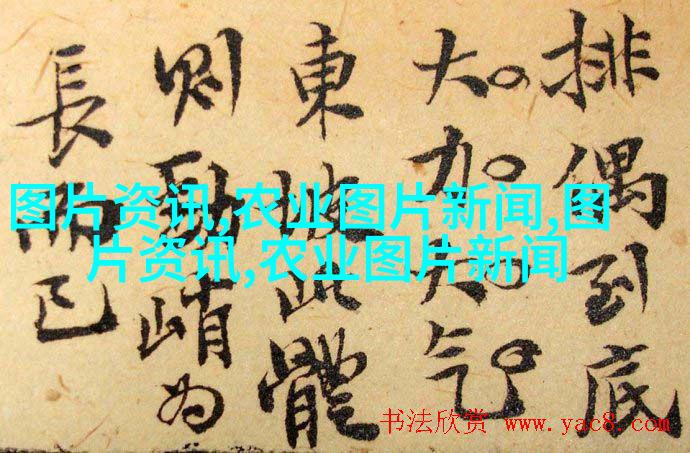 排偶到底
大大气
東坡此體
则峭为
長而已
图片资讯,农业图片新闻,图
片资讯,农业图片新闻
书法欣赏 www.yac8.com